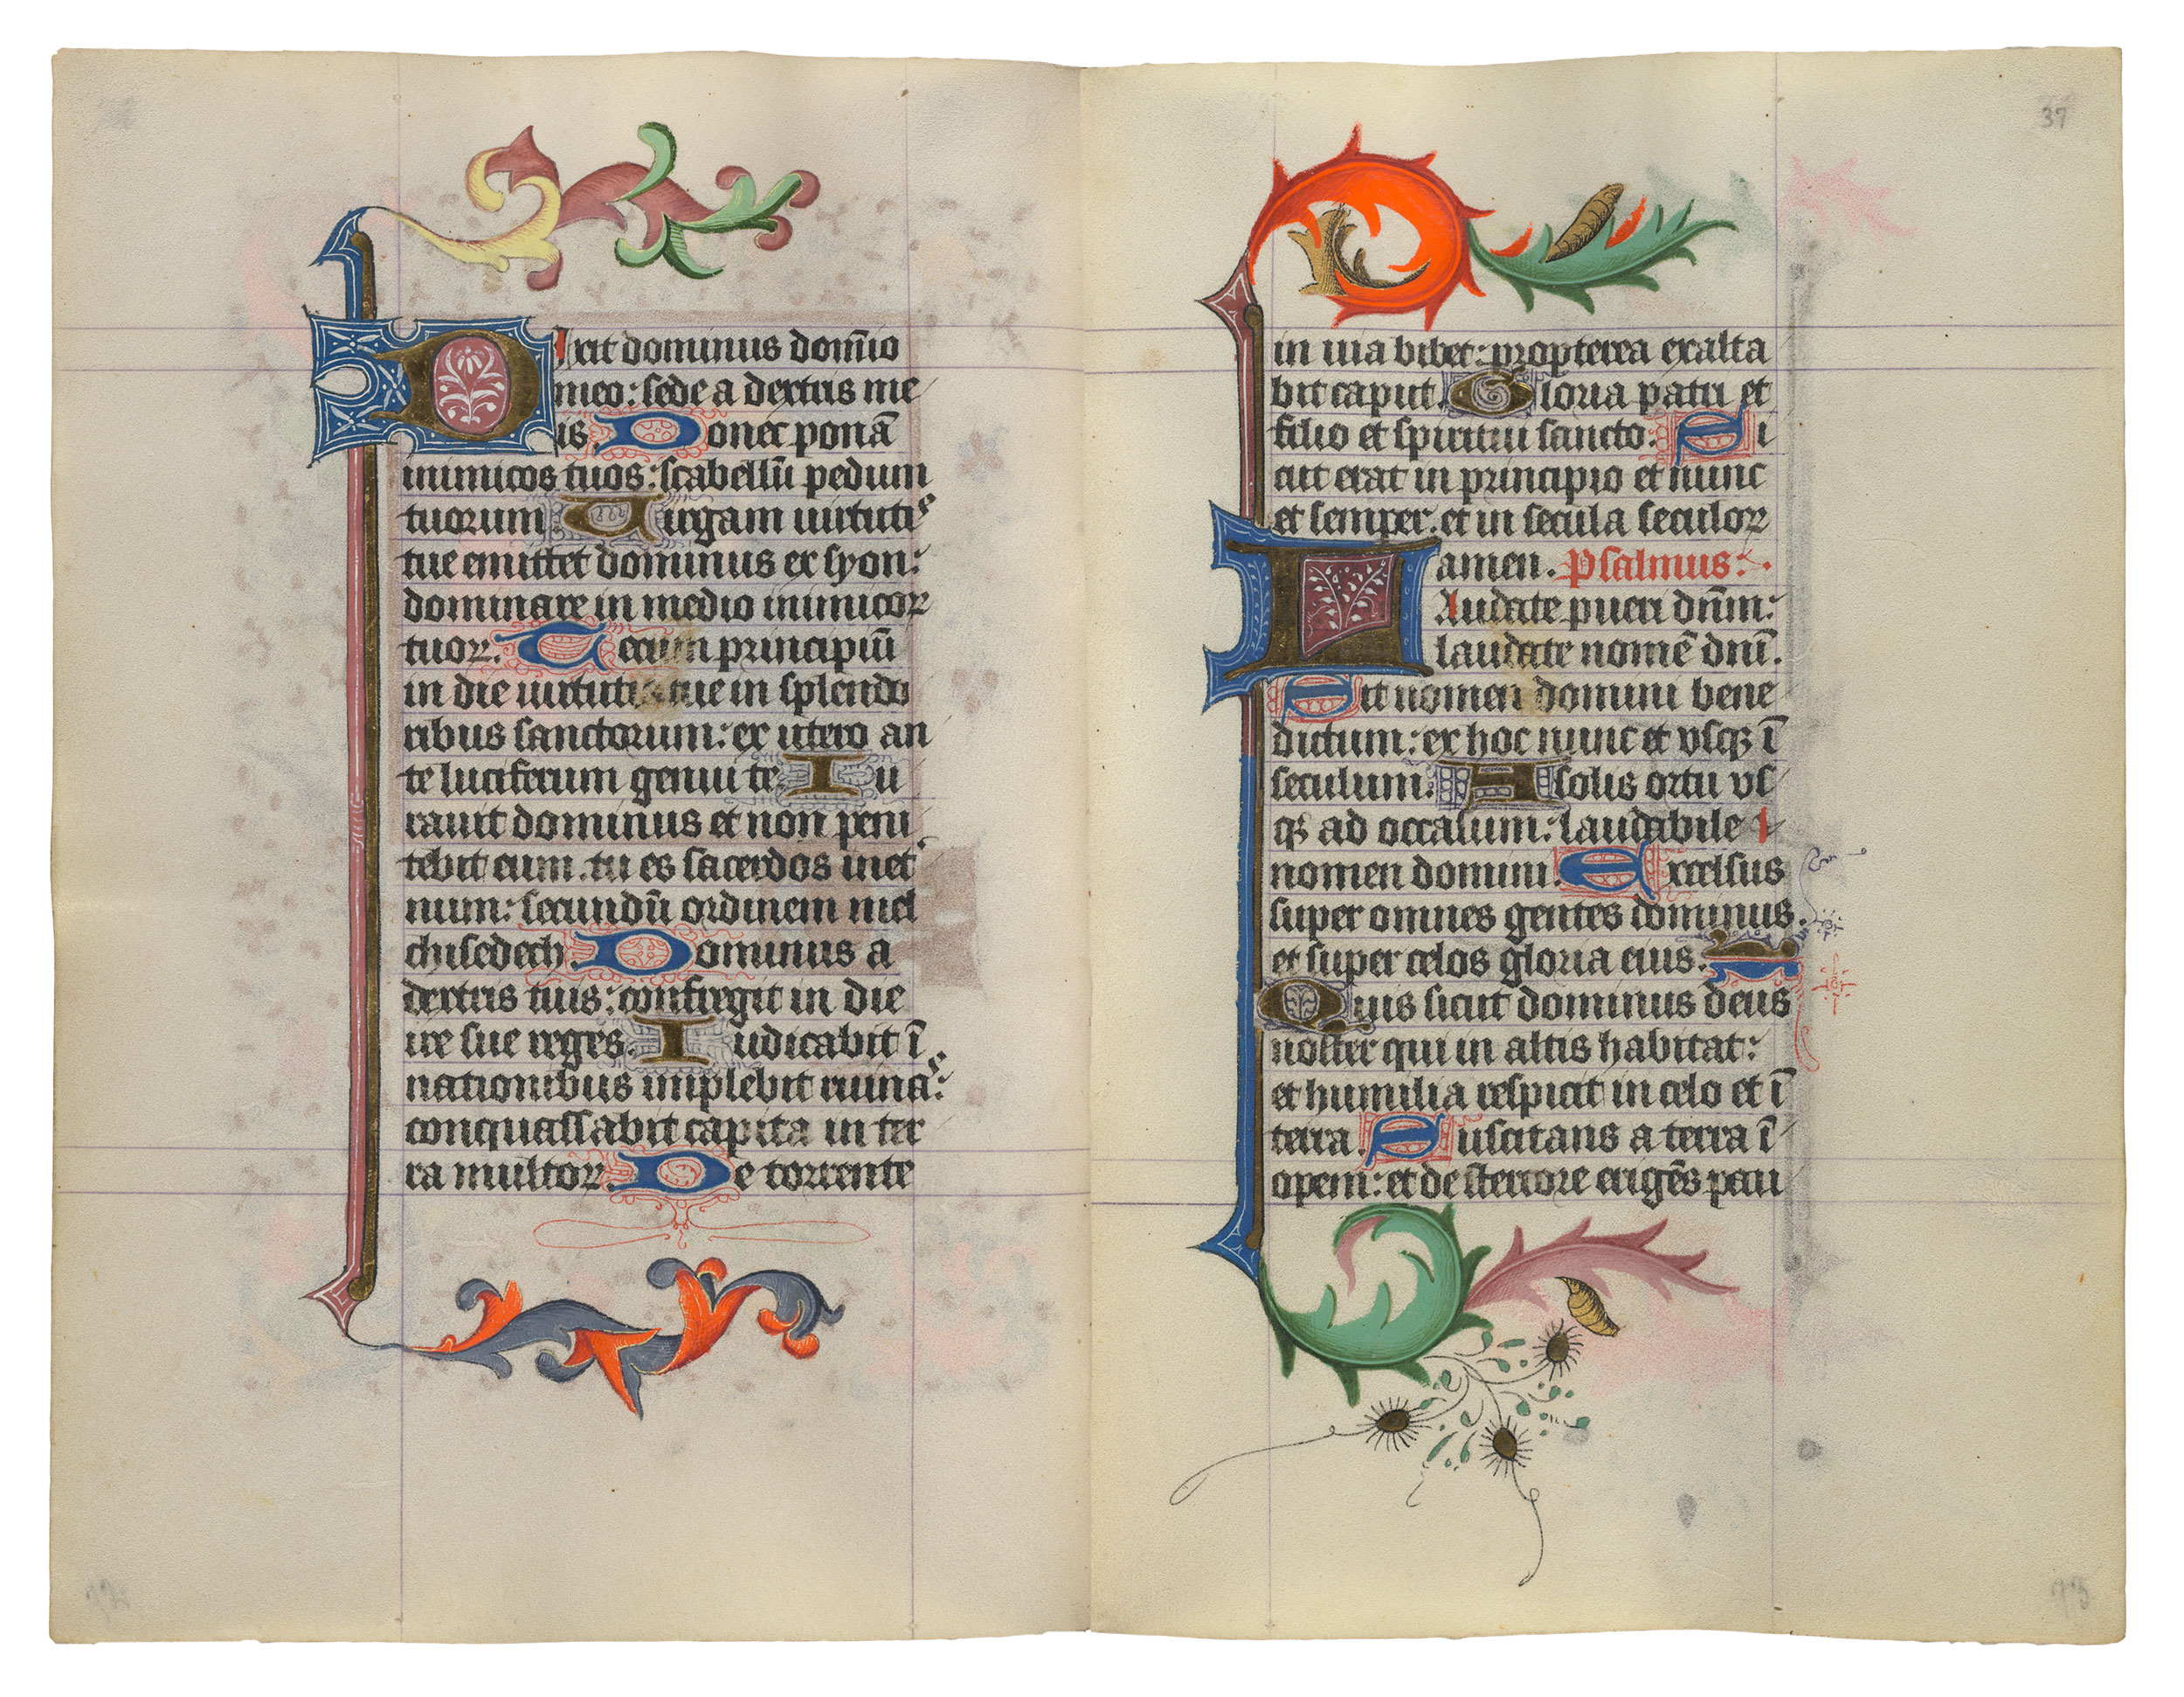 Dixit dominus dom̄io
meo: sede a dextris me
is. Donec ponā
inimicos tuos: scabellū pedum
tuorum. Uirgam uirtutis
tue emittet dominus ex syon:
dominare in medio inimicoꝝ
tuoꝝ. Tecum principiū
in die uirtutis tue in splendo
ribus sanctorum: ex utero an
te luciferum genui te. Iu
rauit dominus et non peni
tebit eum. tu es sacerdos in et͛
num: secundū ordinem mel
chisedech. Dominus a
dextris tuis: confregit in die
ire sue reges. Iudicabit ī
nationibus implebit ruinas:
conquassabit capita in ter
ra multoꝝ. De torrente
37
in uia bibet: propterea exalta
bit caput. Gloria patri et
filio et spiritui sancto: Si
cut erat in principio et nunc
et semper. et in secula seculoꝝ
amen. Psalmus:
Laudate pueri dn̄m:
laudate nomē dnī.
Sit nomen domini bene
dictum: ex hoc nunc et vsqꝫ ī
seculum. A solis ortu vs
qꝫ ad occasum: laudabile
nomen domini. Excelsus
super omnes gentes dominus.
et super celos gloria eius.
Quis sicut dominus deus
noster qui in altis habitat:
et humilia respicit in celo et ī
terra. Suscitans a terra ī
opem: et de stercore erigēs pau
72
73